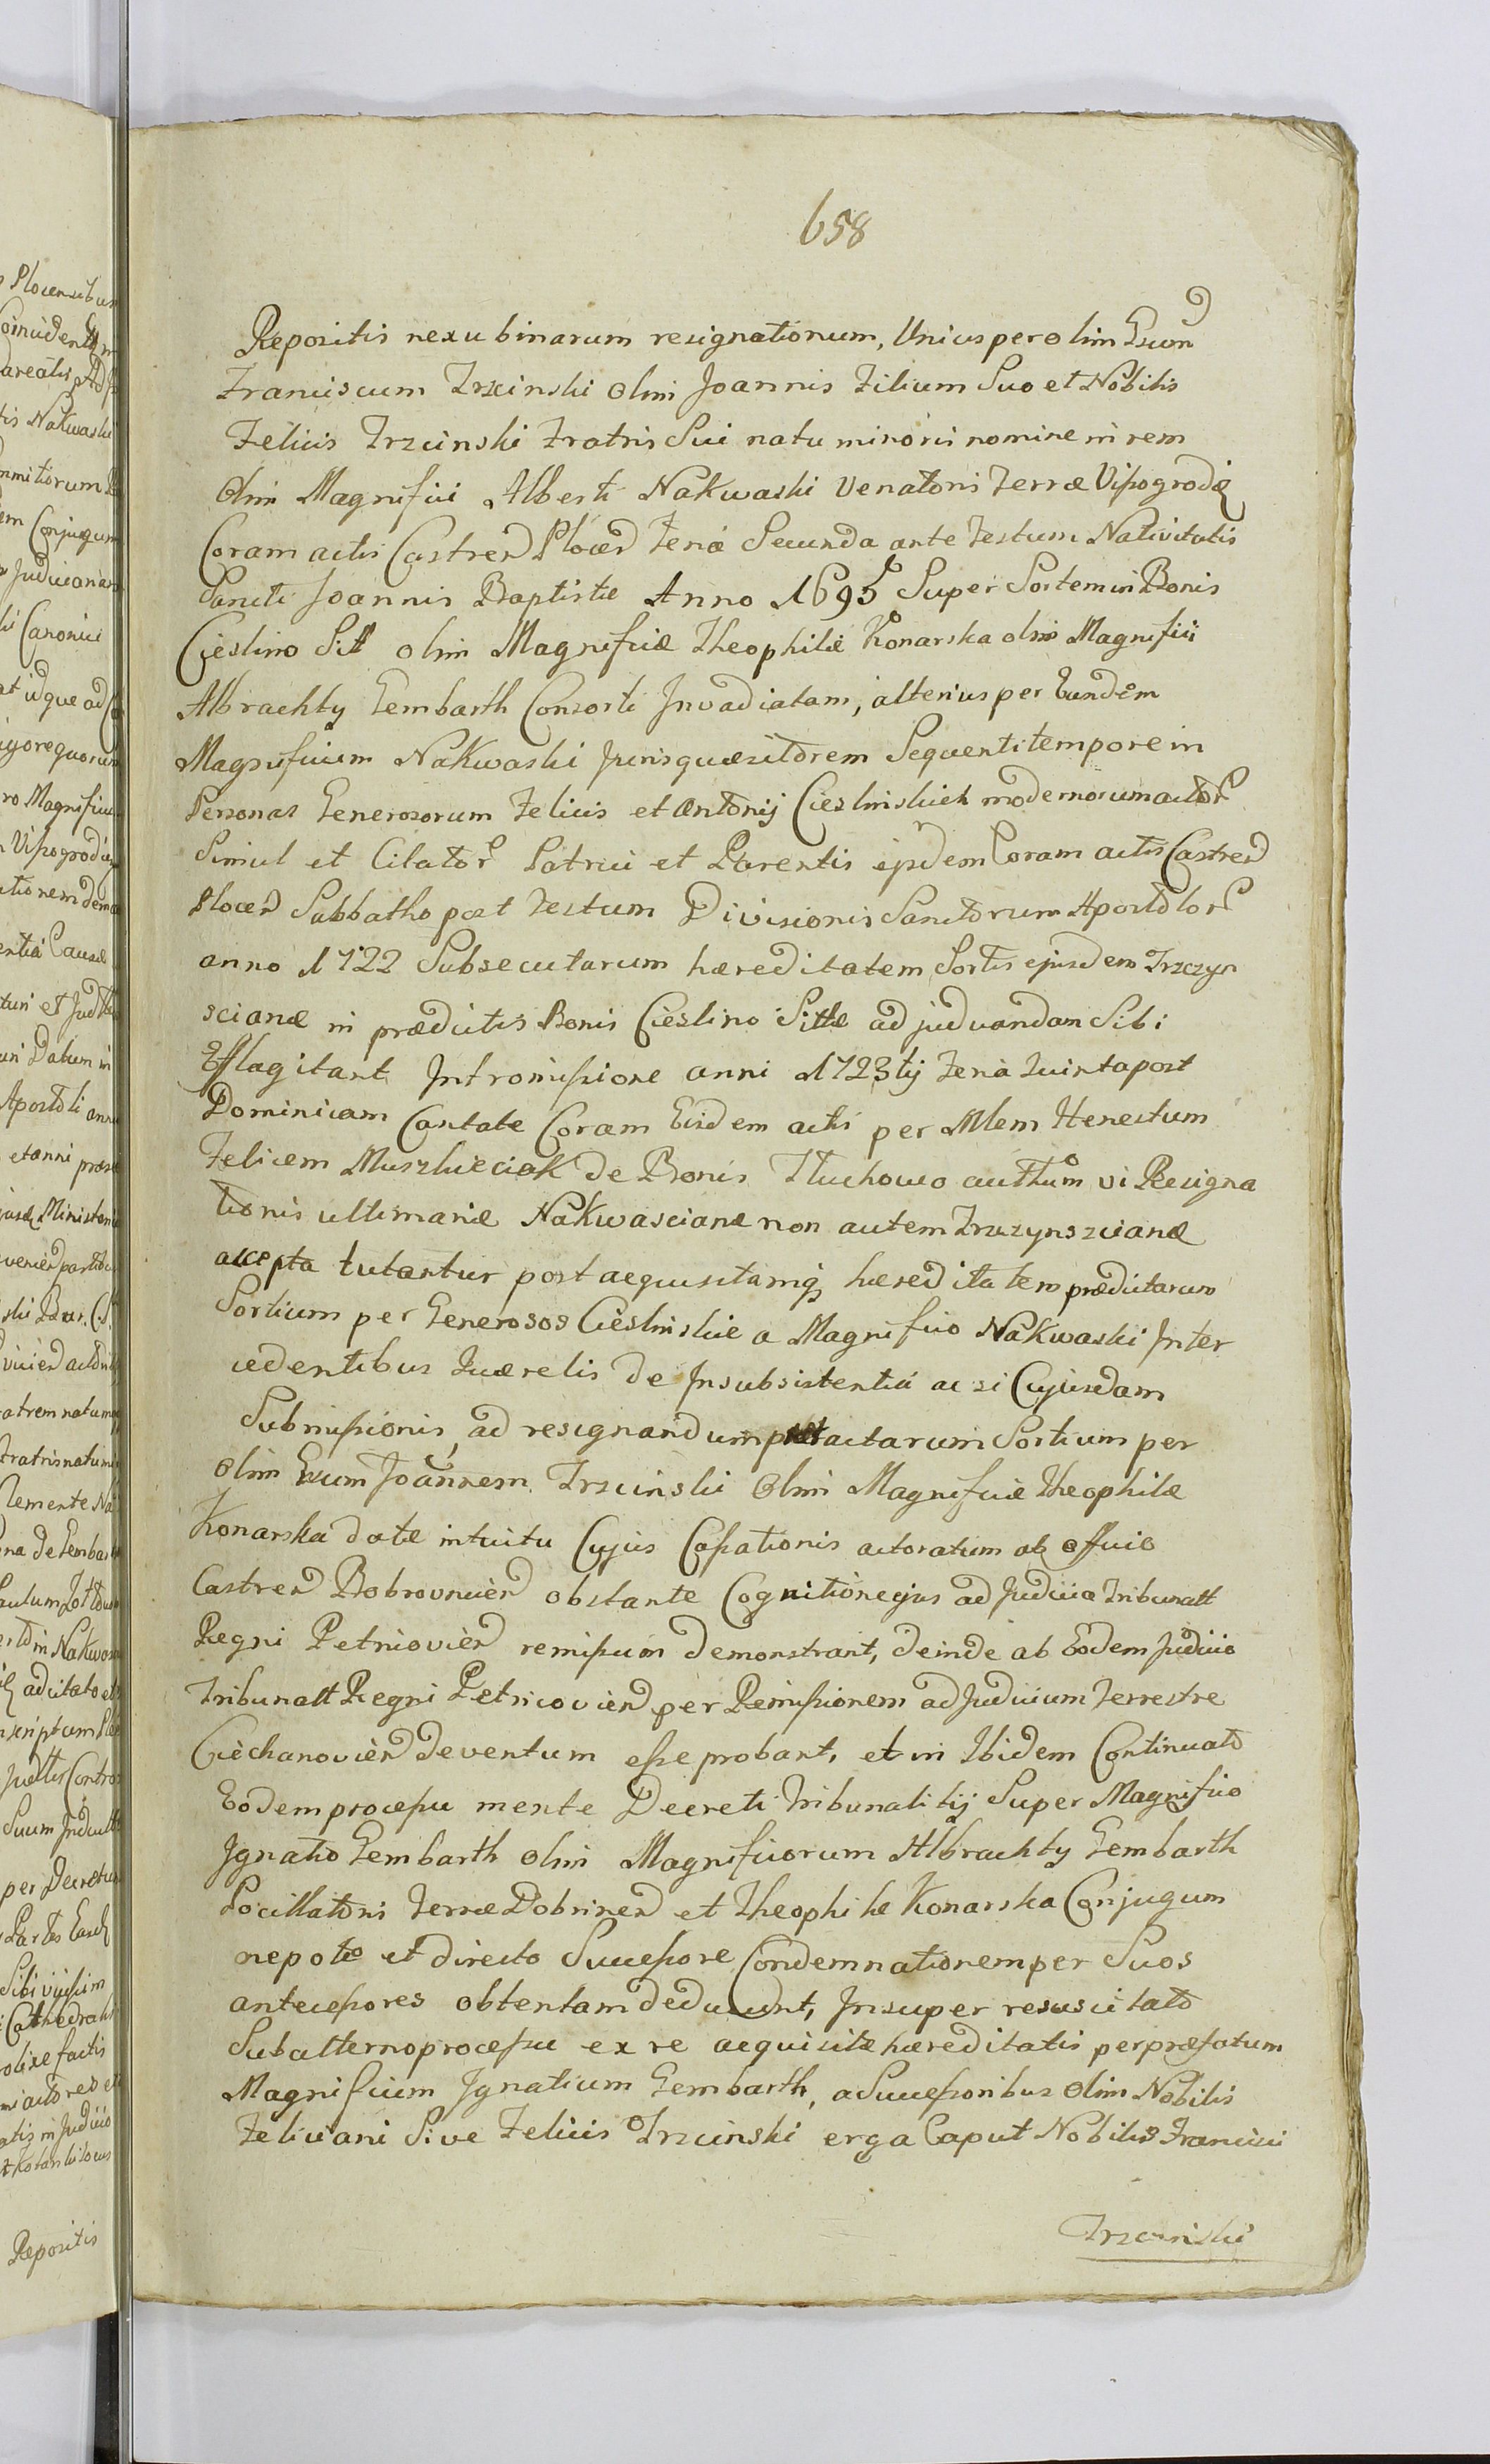 658
Repositis nexu binarum resignationum, Unius per olim Gsum
Franciscum Trzcinski olim Joannis Filium Suo et Nobilis
Felicis Trzcinski Fratris Sui natu minoris nomine in rem
Olim Magnifici Alberti Nakwaski Venatoris Terræ Vißogrodę
Coram actis Castren Plocen Feriâ Secunda ante Festum Nativitatis
Sancti Joannis Baptistæ Anno 1695 Super Sortem in Bonis
Cieslino Sit olim Magnificæ Theophilæ Konarska olim Magnifici
Albrachty Gembarth Consorti Invadiatam, alterius per Eundem
Magnificum Nakwaski Jurisquæsitorem Sequenti tempore in
Personas Generosorum Felicis et Antonij Cieslinskich modernorum actor
Simul et Citator Patrui et Parentis ejsdem Coram actis Castren
Plocen Sabbatho post Festum Divisionis Sanctorum Apostolor
anno 1722 Subsecutarum hæreditatem Sortis ejusdem Trzczyn
scianæ in prædictis Bonis Cieslino Sittæ adjudicandam Sibi
Efflagitant Intromißione anni 1723tij Feria Quinta post
Dominicam Cantate Coram Eisdem actis per Mlem Honestum
Felicem Muszkieciak de Bonis Tłuchowo authum vi Resigna
tionis ultimariæ Nakwascianæ non autem Trzczynszcianæ
accepta tutantur post aequisitamq hæreditatem prædictarum
Sortium per Generosos Cieslinskie a Magnifico Nakwaski Inter
cedentibus Quærelis de Insubsistentiâ ac si Cujusdam
Submißionis, ad resignandum prætactarum Sortium per
olim Gsum Joannem Trzcinski Olim Magnificæ Theophilæ
Konarska datæ intuitu Cujus Caßationis actoratum ab officio
Castren Bobrovnicen obstante Cognitione ejus ad Judicia Tribunatt
Regni Petricovien remißum demonstrant, deinde ab Eodem Judicio
Tribunatt Regni Petricovien per Remißionem ad Judicium Terrestre
Ciechanovien deventum eße probant, et in Ibidem Continuato
Eodem proceßu mente Decreti Tribunalitij Super Magnifico
Ignatio Gembarth olim Magnificorum Albrachty Gembarth
Pocillatoris Terræ Dobrinen et Theophilæ Konarska Conjugum
nepote et directo Succeßore Condemnationem per Suos
anteceßores obtentam deducunt, Insuper resuscitato
Subalterno proceßu ex re acquisitæ hæreditatis per præfatum
Magnificum Ignatium Gembarth, a Succeßoribus Olim Nobilis
Feliciani Sive Felicis Trzcinski erga Caput Nobilis Francisci
Trzcinski